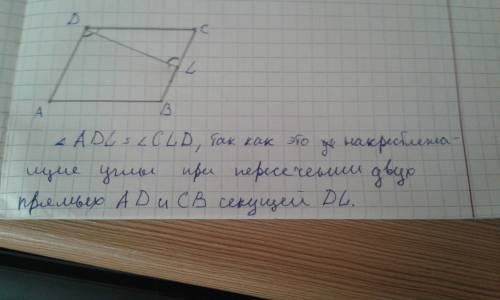 D C
L
A B
∠ADL = ∠CLD, так как это накрестлежа-
щие углы при пересечении двух
прямых AD и CB секущей DL.